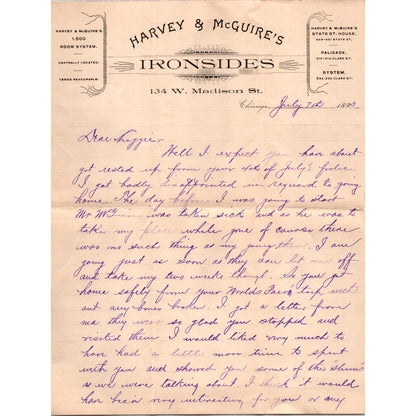 HARVEY & McGUIRE'S
1,500
ROOM SYSTEM.
CENTRALLY LOCATED.
TERMS REASONABLE.
HARVEY & McGUIRE'S
IRONSIDES
134 W. Madison St.
HARVEY & McGUIRE'S
STATE ST. HOUSE.
PALISADE.
SYSTEM.
Chicago, July 7th 1893
Dear
Well I expect you have about
got rested up from your 4th of July's frolic.
I got badly disappointed in reguard to going
home. The day before I was going to start
Mr was taken sick and as he was to
take my place while gone of course there
was no such thing as my going then. I am
going just as soon as they can let me off
and take my two weeks though. So you got
home safely from your Worlds Fair trip with
out any bones broke. I got a letter from
ma they were so glad you stopped and
visited them. I would liked very much to
have had a little more time to spent
with you and showed you some of the
as we were talking about I think it would
have been very interesting for you or any